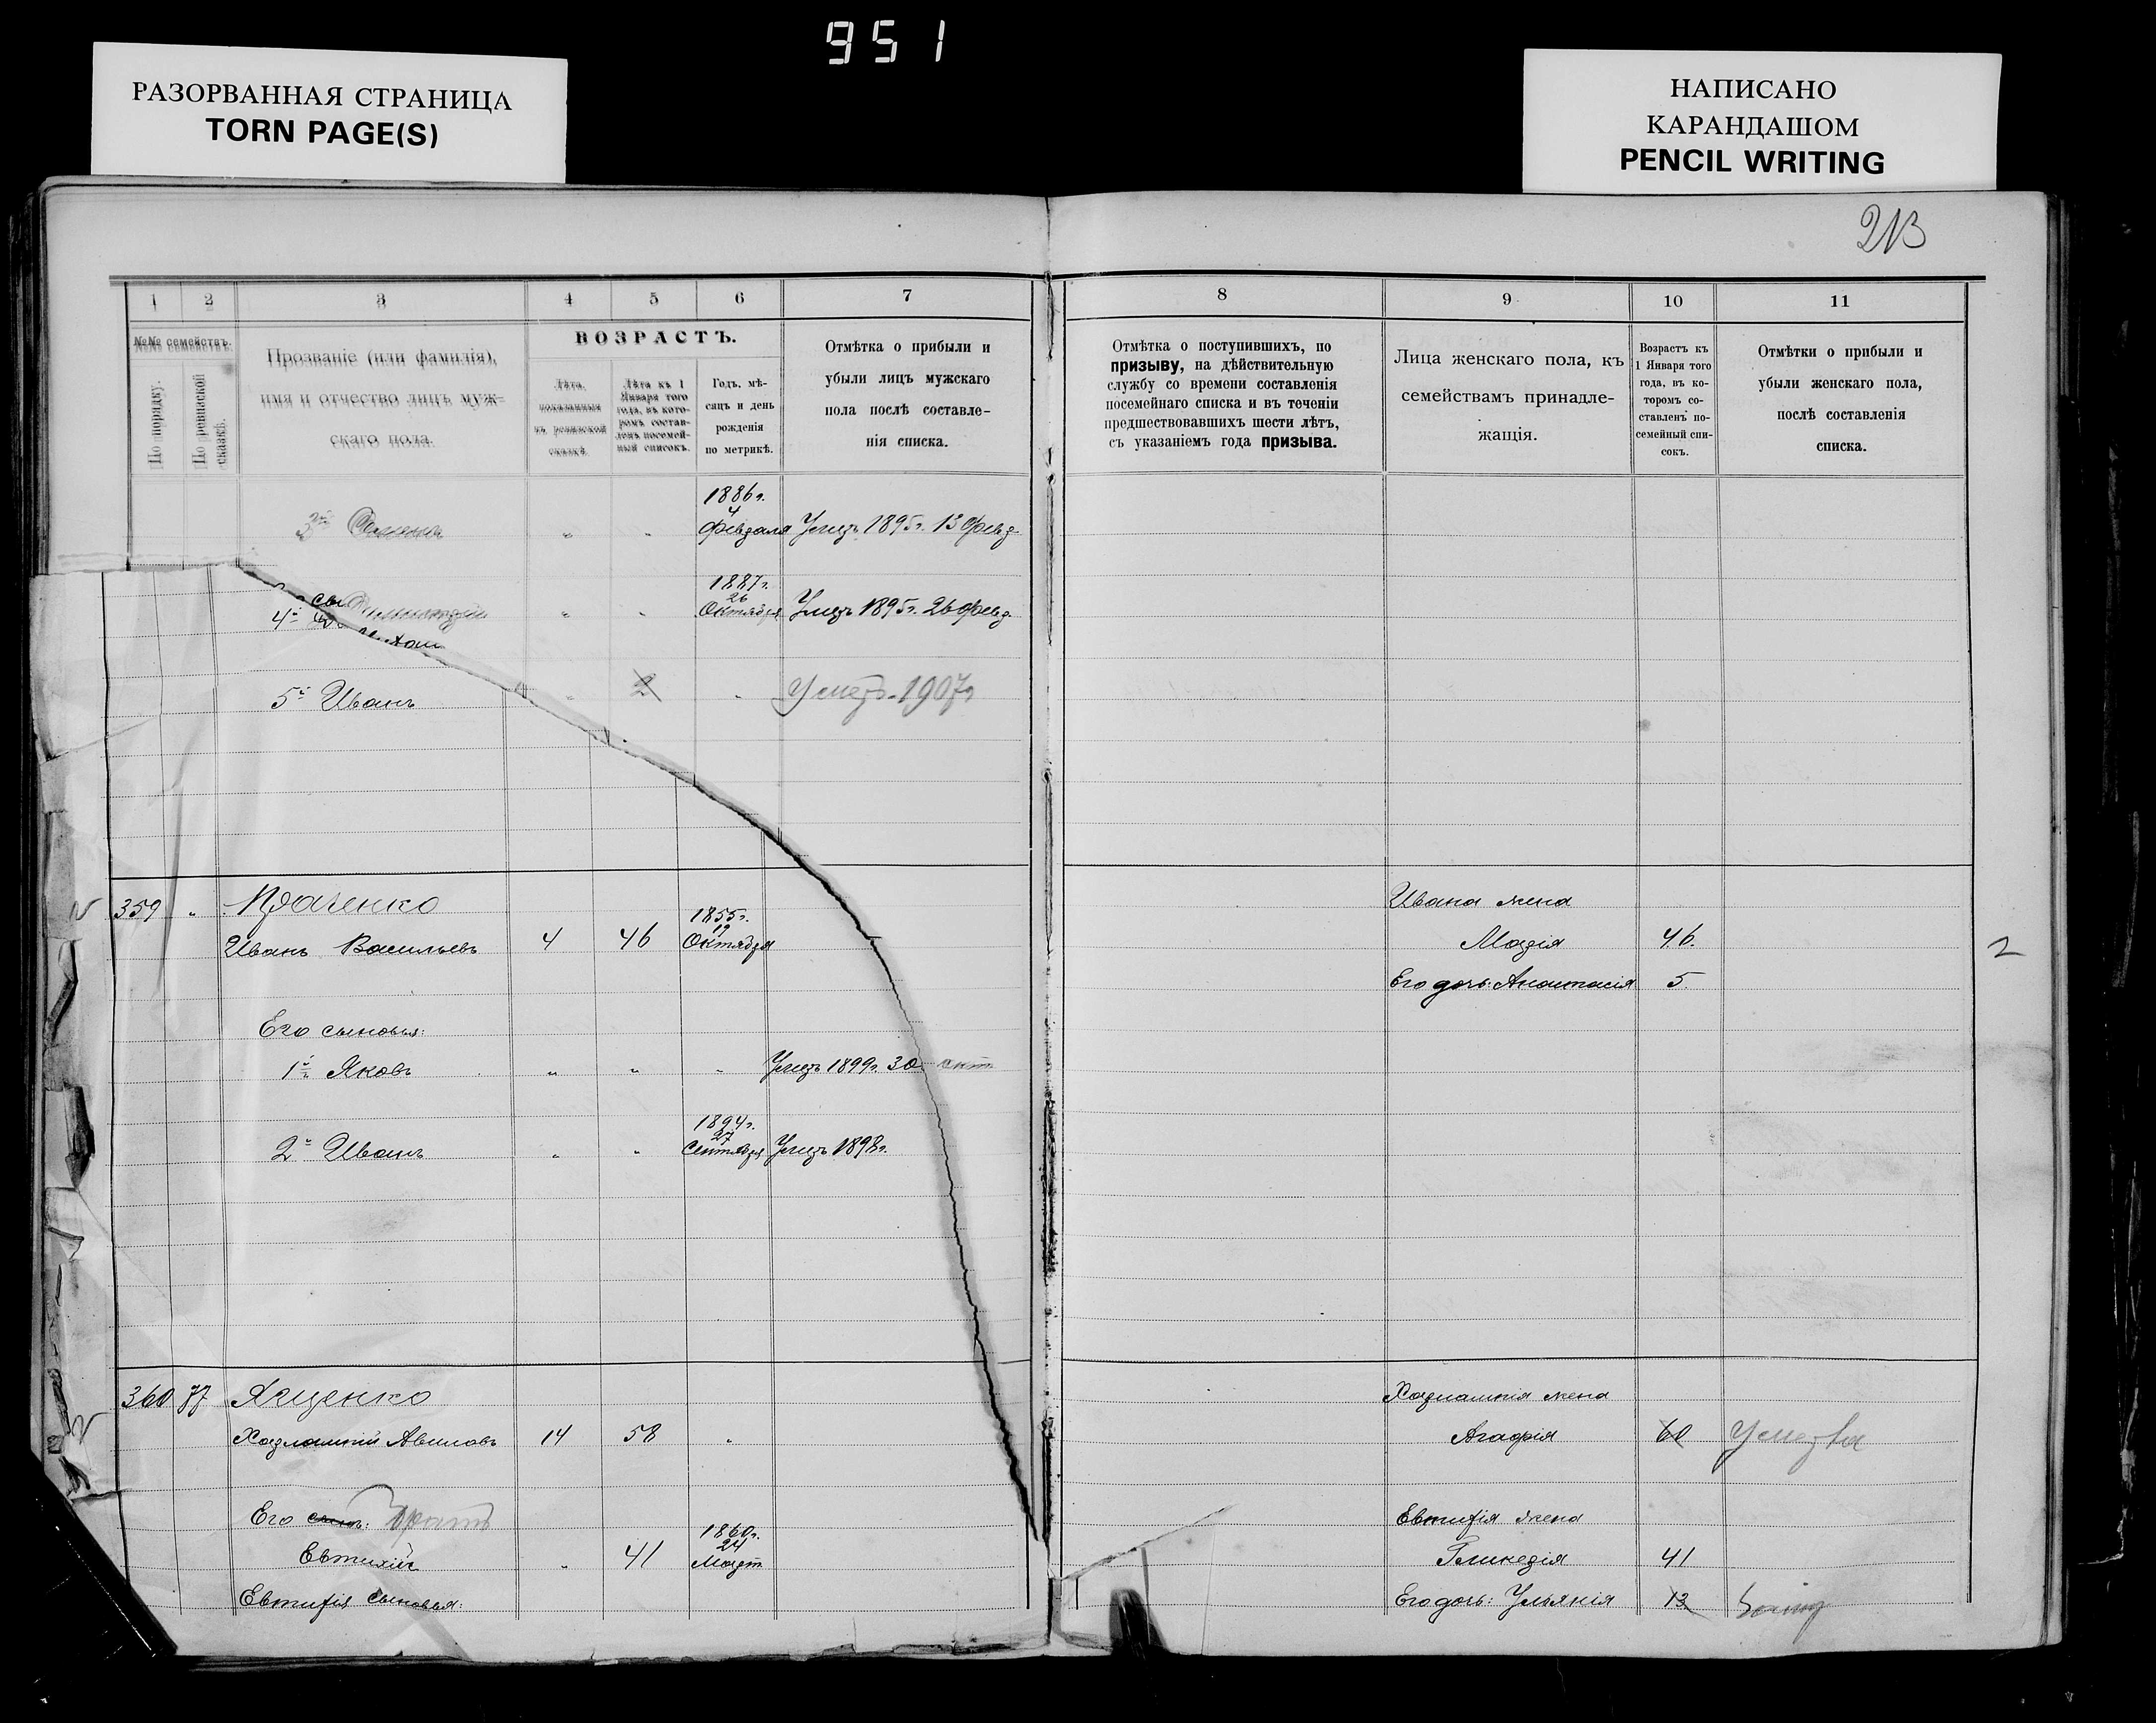 951
РАЗОРВАННАЯ СТРАНИЦА
TORN PAGE(S)
НАПИСАНО
КАРАНДАШОМ
PENCIL WRITING
213
1 2 3 4 5 6 7
№№ семействъ.
По порядку.
По ревизской сказкѣ.
Прозваніе (или фамилія),
имя и отчество лицъ муж-
скаго пола.
ВОЗРАСТЪ.
Лѣта,
показанныя
въ ревизской
сказкѣ.
Лѣта къ 1
Января того
года, въ кото-
ромъ состав-
ленъ посемей-
ный списокъ.
Годъ, мѣ-
сяцъ и день
рожденія
по метрикѣ.
Отмѣтка о прибыли и
убыли лицъ мужскаго
пола послѣ составле-
нія списка.
1886г.
4
3й Семенъ " " Февраля Умеръ 1895г. 13 Февр.
1887г.
26
4й " " Октября Умеръ 1895г. 26 Февр.
5й Иванъ " 2 " Умеръ 1907г
359 "
1855г.
19
Иванъ Васильевъ 4 46 Октября
Его сыновья:
1й Яковъ " " " Умеръ 1899г. 30 окт
1894г.
27
2й Иванъ " " Сентября Умеръ 1898г.
360 77 Яценко
Харлампій Авиловъ 14 58 "
Его сынъ: братъ
1860г.
24
Евтихій " 41 Март
Евтифія сыновья:
8 9 10 11
Отмѣтка о поступившихъ, по
призыву, на дѣйствительную
службу со времени составленія
посемейнаго списка и въ теченіи
предшествовавшихъ шести лѣтъ,
съ указаніемъ года призыва.
Лица женскаго пола, къ
семействамъ принадле-
жащія.
Возрастъ къ
1 Января того
года, въ ко-
торомъ со-
ставленъ по-
семейный спи-
сокъ.
Отмѣтки о прибыли и
убыли женскаго пола,
послѣ составленія
списка.
Ивана жена
Марія 46.
2
Его дочь: Анастасія 5.
Харлампія жена
Агафія 60 Умерла
Евтифія жена
Гликерія 41
Его дочь: Ульянія 13